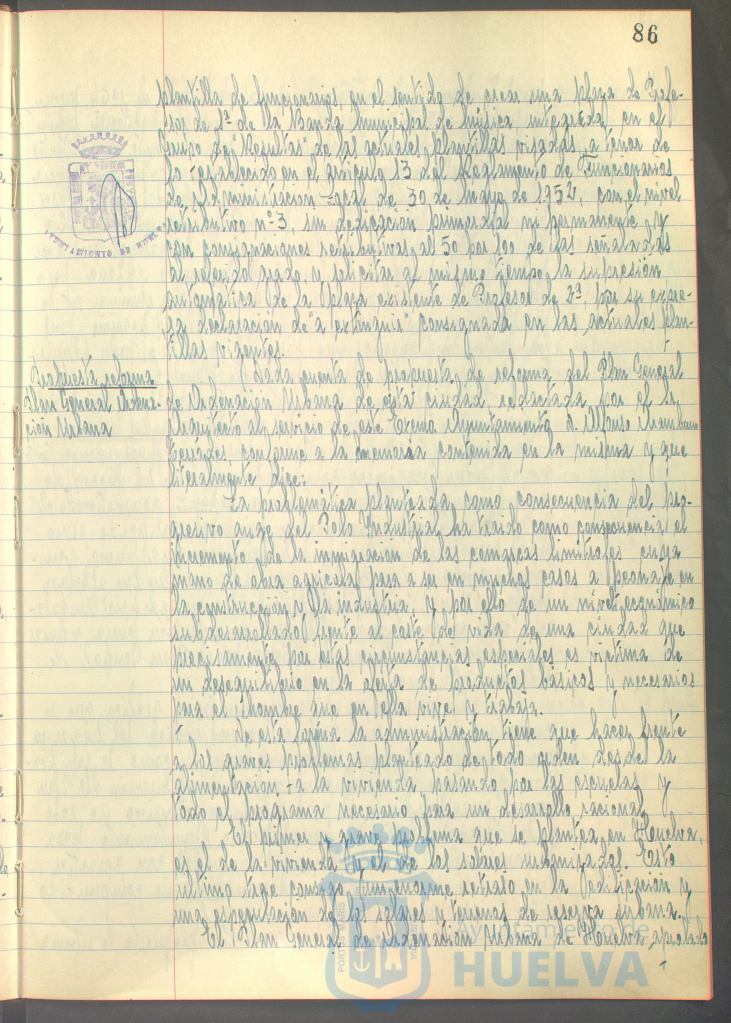 86
plantilla de funcionarios, en el sentido de crear una plaza de Profe-
sor de 1ª de la Banda Municipal de Música integrada en el
Grupo de "Resultas" de las actuales plantillas visadas, a tenor de
lo establecido en el artículo 13 del Reglamento de Funcionarios
de Administración Local de 30 de Mayo de 1952, con el nivel
retributivo nº 3, sin dedicación primordial ni permanente y
con consignaciones retributivas al 50 por 100 de las señaladas
al referido grado y solicitar al mismo tiempo la supresión
automática de la plaza existente de Profesor de 2ª por su expre-
sa declaración de "a extinguir" consignada en las actuales plan-
tillas vigentes.
Propuesta reforma
Plan General Ordena-
ción Urbana
Dada cuenta de propuesta de reforma del Plan General
de Ordenación Urbana de esta ciudad, redactada por el Sr.
Arquitecto al servicio de este Excmo Ayuntamiento d. Alfonso
conforme a la memoria contenida en la misma y que
literalmente dice:
La problemática planteada como consecuencia del pro-
gresivo auge del Polo Industrial, ha traido como consecuencia el
incremento de la inmigración de las comarcas limítrofes cuya
mano de obra agrícola pasa a ser en muchos casos a peonaje en
la construcción y la industria, y por ello de un nivel económico
subdesarrollado frente al coste de vida de una ciudad que
precisamente por estas circunstancias especiales es victima de
un desequilibrio en la oferta de productos básicos y necesarios
para el hombre que en ella vive y trabaja.
De esta forma la administración tiene que hacer frente
a los graves problemas planteado de todo orden desde la
alimentación a la vivienda pasando por las escuelas y
todo el programa necesario para un desarrollo racional.
El primer y grave problema que se plantea en Huelva,
es el de la vivienda y el de los solares urbanizados. Esto
último trae consigo un enorme retraso en la edificación y
una especulación de los solares y terrenos de reserva urbana.
El Plan General de Ordenación Urbana de Huelva, aprobado
Ayuntamiento de
HUELVA